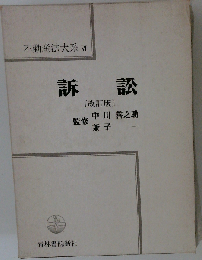 不動産法大系 Ⅵ
訴訟
〔改訂版〕
監修 中川善之助
兼子 一
青林書院新社